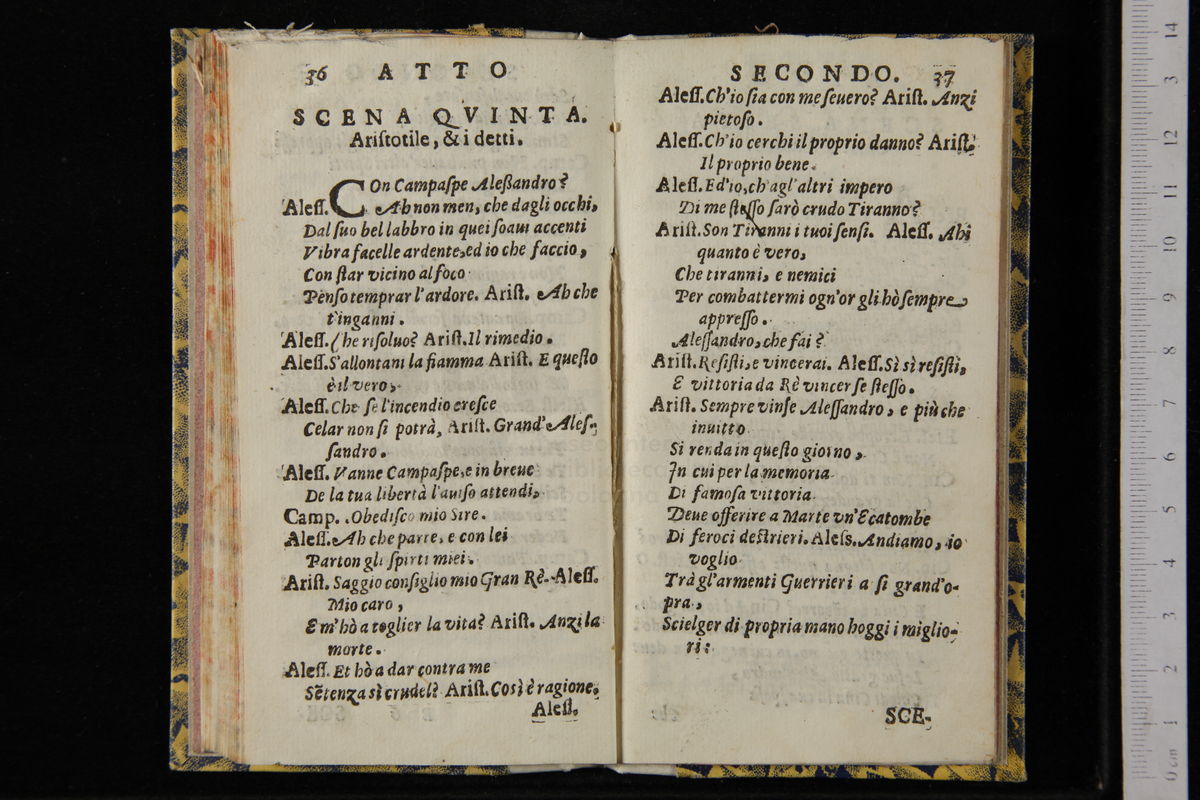 36 ATTO
SCENA QVINTA.
Ariſtotile, & i detti.
COn Campaſpe Aleßandro?
Aleſſ. Ah non men, che dagli occhi,
Dal ſuo bel labbro in quei ſoaui accenti
Vibra facelle ardente, ed io che faccio,
Con ſtar vicino al foco
Penſo temprar l'ardore. Ariſt. Ah che
t'inganni.
Aleſſ. Che riſoluo? Ariſt. Il rimedio.
Aleſſ. S'allontani la fiamma Ariſt. E queſto
è il vero,
Aleſſ. Che ſe l'incendio creſce
Celar non ſi potrà, Ariſt. Grand'Aleſ-
ſandro.
Aleſſ. Vanne Campaſpe, e in breue
De la tua libertà l'auiſo attendi,
Camp. Obediſco mio Sire.
Aleſſ. Ah che parte, e con lei
Parton gli ſpirti miei.
Ariſt. Saggio conſiglio mio Gran Rè. Aleſſ.
Mio caro,
E m'hò a toglier la vita? Ariſt. Anzi la
morte.
Aleſſ. Et hò a dar contra me
Sẽtenza sì crudel? Ariſt. Così è ragione,
Aleſſ.
SECONDO. 37
Aleſſ. Ch'io ſia con me ſeuero? Ariſt. Anzi
pietoſo.
Aleſſ. Ch'io cerchi il proprio danno? Ariſt.
Il proprio bene.
Aleſſ. Ed'io, ch'agl'altri impero
Di me ſteſſo ſarò crudo Tiranno?
Ariſt. Son Tiranni i tuoi ſenſi. Aleſſ. Ahi
quanto è vero,
Che tiranni, e nemici
Per combattermi ogn'or gli hò ſempre
appreſſo.
Aleſſandro, che fai?
Ariſt. Reſiſti, e vincerai. Aleſſ. Sì sì reſiſti,
E vittoria da Rè vincer ſe ſteſſo.
Ariſt. Sempre vinſe Aleſſandro, e più che
inuitto
Si renda in queſto giorno,
In cui per la memoria
Di famoſa vittoria
Deue offerire a Marte vn'Ecatombe
Di feroci deſtrieri. Aleſs. Andiamo, io
voglio
Trà gl'armenti Guerrieri a ſi grand'o-
pra,
Scielger di propria mano hoggi i miglio-
ri:
SCE-